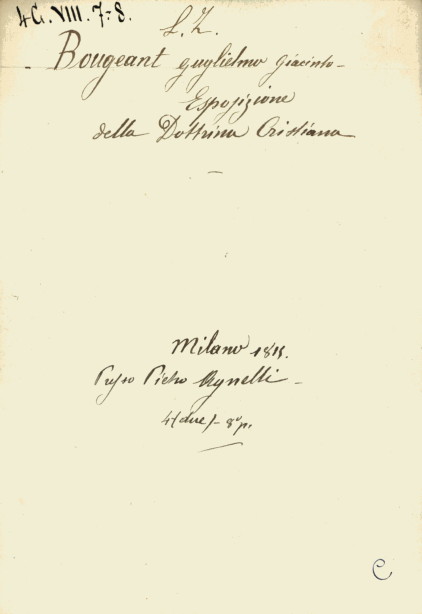 4G. VIII. 7-8.
L. Z.
- Bougeant Guglielmo Giacinto -
Esposizione
della Dottrina Cristiana
—
Milano 1815.
Presso Pietro Agnelli -
8º p.
C